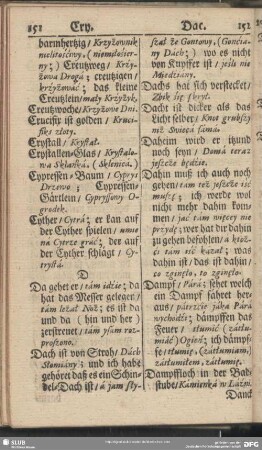 151 Cry. Dac. 152
barmhertzig / Krzyżownik
nielitościwy, (niemiłosier-
ny) ; Creutzweg / Krzy-
żowa Droga ; creutzigen /
krzyżować ; das kleine
Creutzlein / mały Krzyżyk.
Creutzwoche / Krzyżowe Dni.
Crucifix ist golden / Kruci-
fiks złoty.
Crystall / Kryształ.
Crystallen-Glas / Kryształo-
wa Sklanka, (Sklenicá.)
Cypressen-Baum / Cyprys
Drzewo ; Cypressen-
Gärtlein / Cypryssowy O-
grodek.
Cyther / Cytrá ; er kan auf
der Cyther spielen / umie
na Cytrze gráć ; der auf
der Cyther schlägt / Cy-
trystá.
D
Da gehet er / tám idzie ; da
hat das Messer gelegen /
tám leżał Noż ; es ist da
und da (hin und her)
zerstreuet / tám ysám roz-
proszono.
Dach ist von Stroh / Dách
Słomiány ; und ich habe
gehöret daß es ein Schin-
del-Dach ist / á jam sły-
szał że Gontowy, (Gonciá-
ny Dách) ; wo es nicht
von Kupffer ist / jeśli nie
Miedziány.
Dachs hat sich verstecket /
Zbik się skrył.
Dacht ist dicker als das
Licht selber / Knot grubszy
niż Swiecá sámá.
Daheim wird er itzund
noch seyn / Domá teraz
jeszcze będzie.
Dahin muß ich auch noch
gehen / tám też jeszcze iść
muszę ; ich werde wol
nicht mehr dahin kom-
men / jáć tám więcey nie
przydę ; wer hat dir dahin
zu gehen befohlen / á ktoż
ci tám iść kazał ; was
dahin ist / das ist dahin /
co zginęło, to zginęło.
Dampf / Párá ; sehet welch
ein Dampf fähret her-
aus / pátrzcie jáka Párá
wychodzi ; dämpffen das
Feuer / tłumić (zátłu-
mić) Ogień ; ich dämpf-
fe / tłumię, (zátłumiam,)
zátłumiłem, zátłumię.
Dampffloch in der Bad-
stube / Kamienká w Łáźni.
Dane